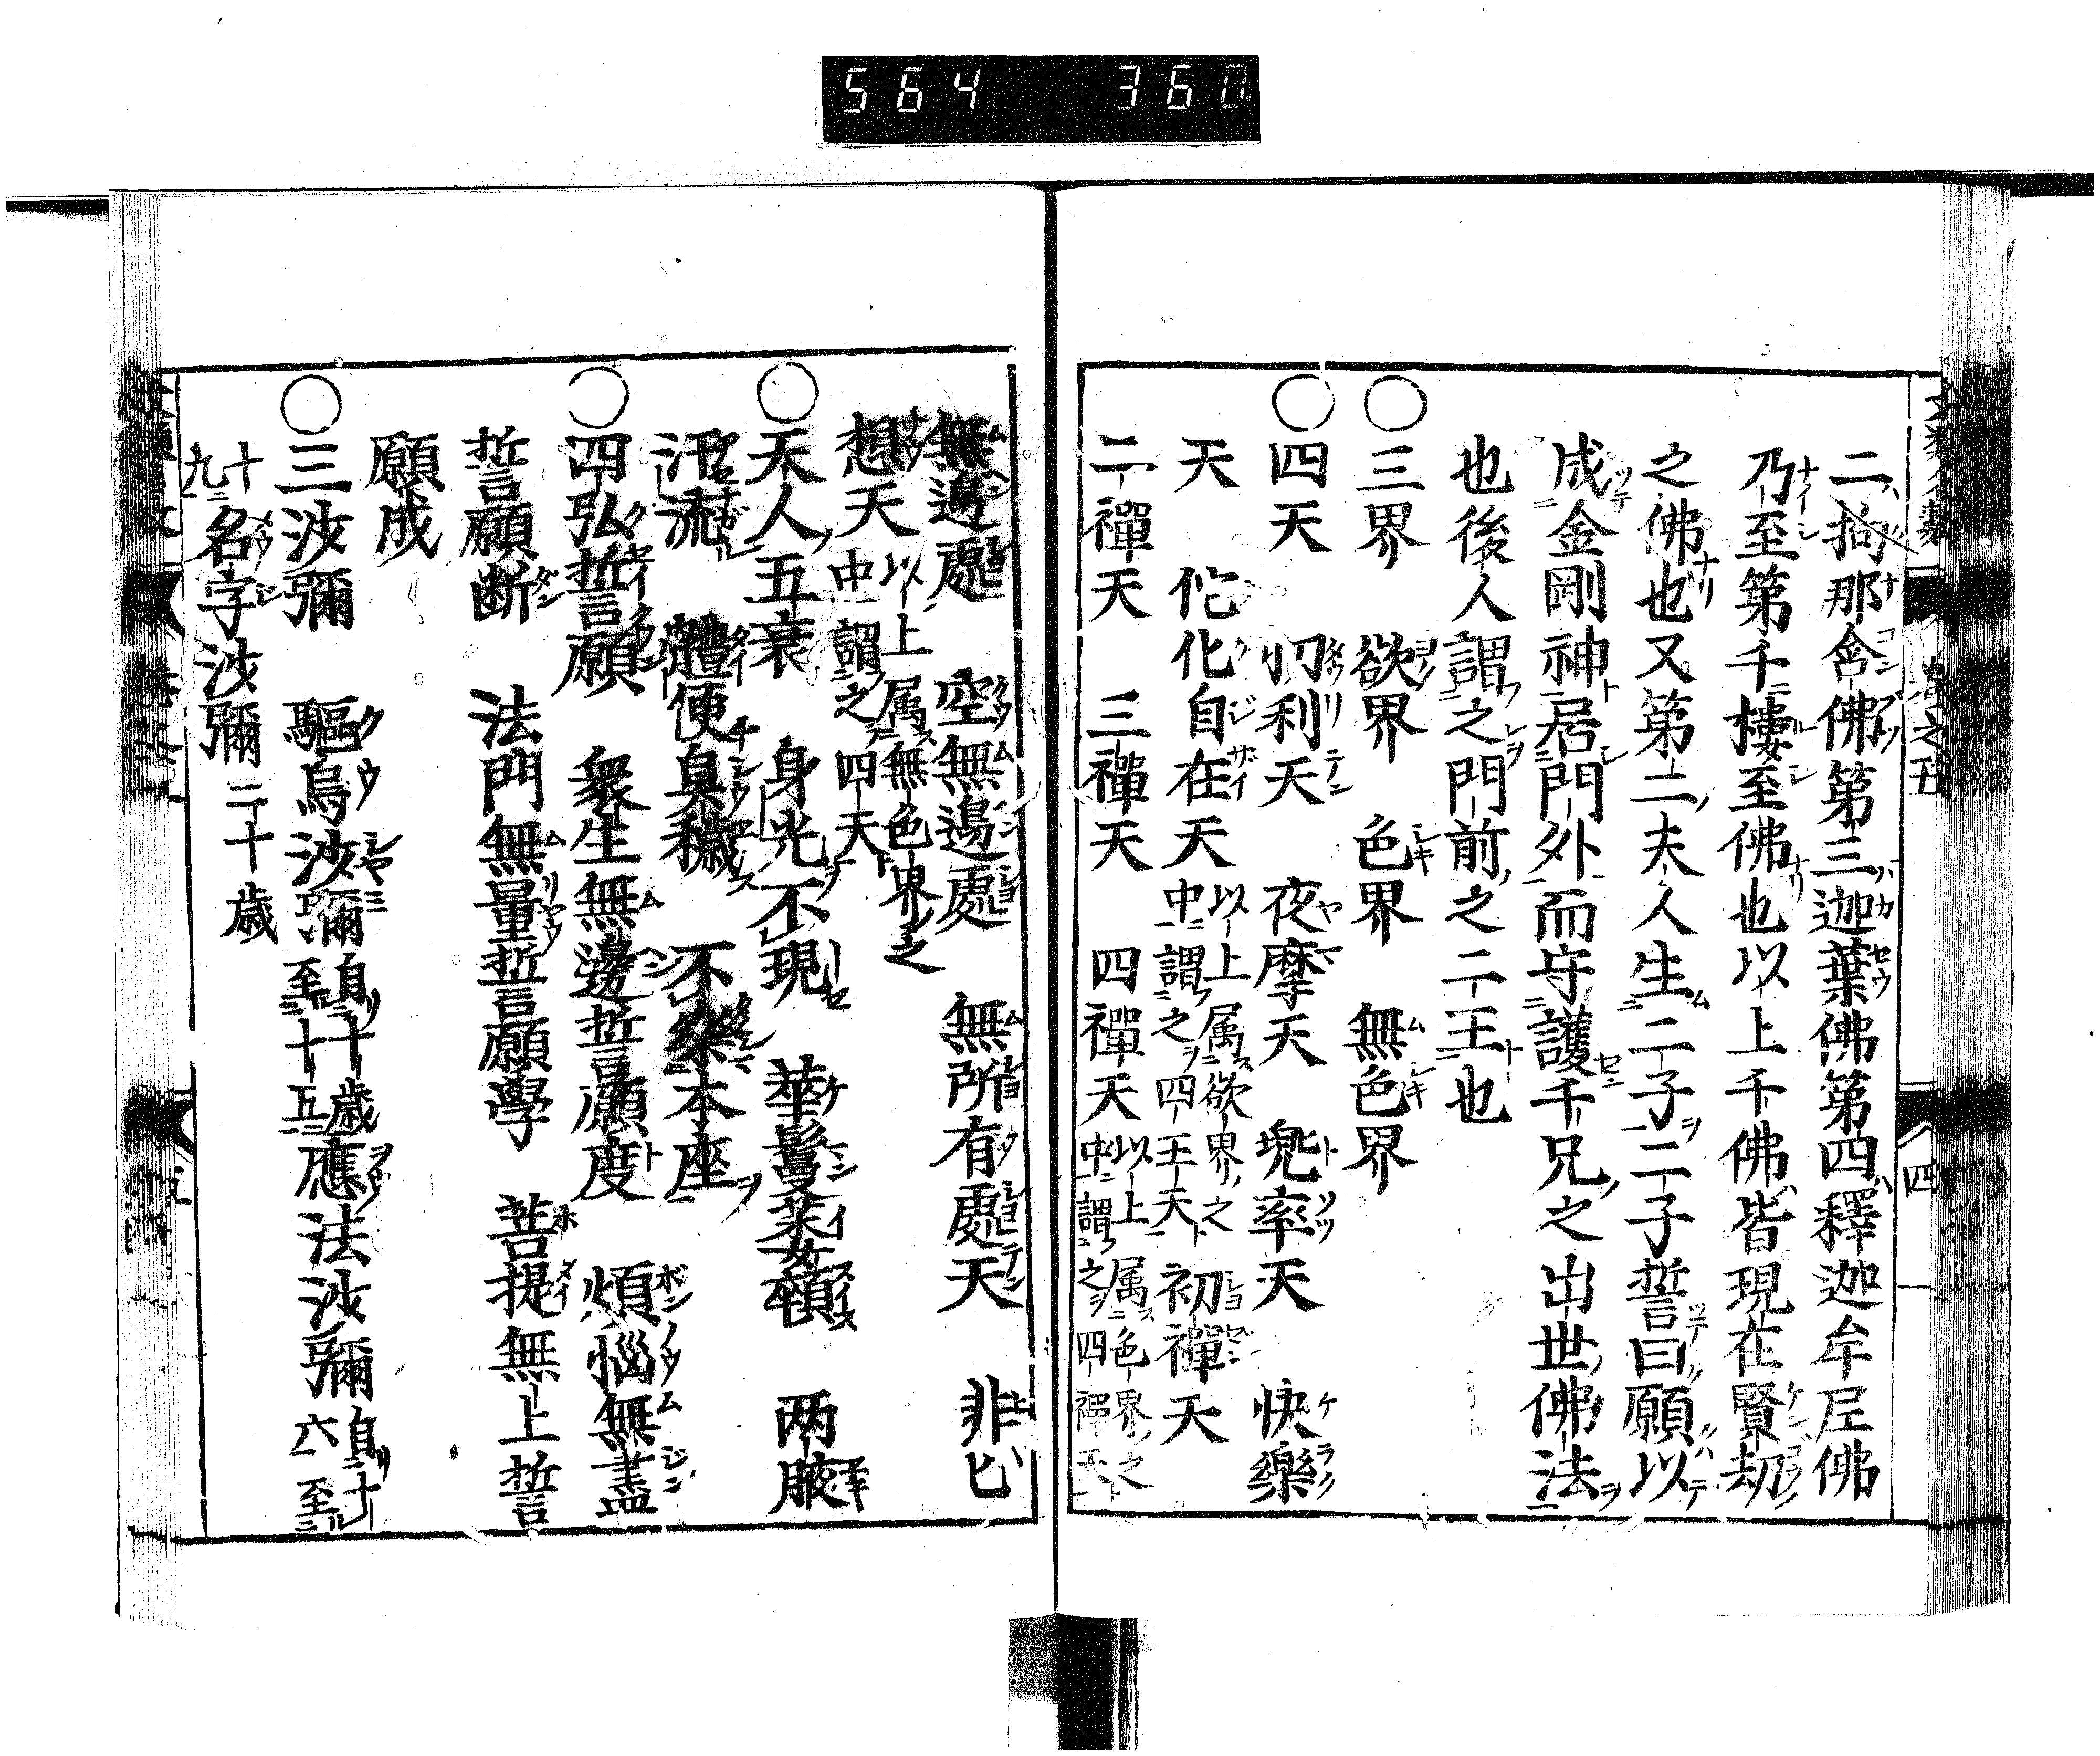 564 360
二拘那含佛第三迦葉佛第四釋迦牟尼佛
乃至第千樓至佛也以上千佛皆現在賢劫
之佛也又第二夫人生二子二子誓曰願以
成金剛神居門外而守護千兄之出世佛法
也後人謂之門前之二王也
○三界 欲界 色界 無色界
○四天 忉利天 夜摩天 兜率天 快樂
天 化化自在天 以上属欲界之中謂之四王天 初禪天
二禪天 三禪天 四禪天 以上属色界之中謂之四禪天
無邊處 空無邊處 無所有處天 非々
想天 以上属無色界之中謂之四天
○天人五衰 身光不現 華鬘菜女頓 两腋
汗流 體便臭穢 不樂本座
○四弘誓願 衆生無邊誓願度 煩惱無盡
誓願断 法門無量誓願學 菩提無上誓
願成
○三沙彌 驅烏沙彌 自十歳至十五 應法沙彌 自十六至
十九 名字沙彌 二十歳
四